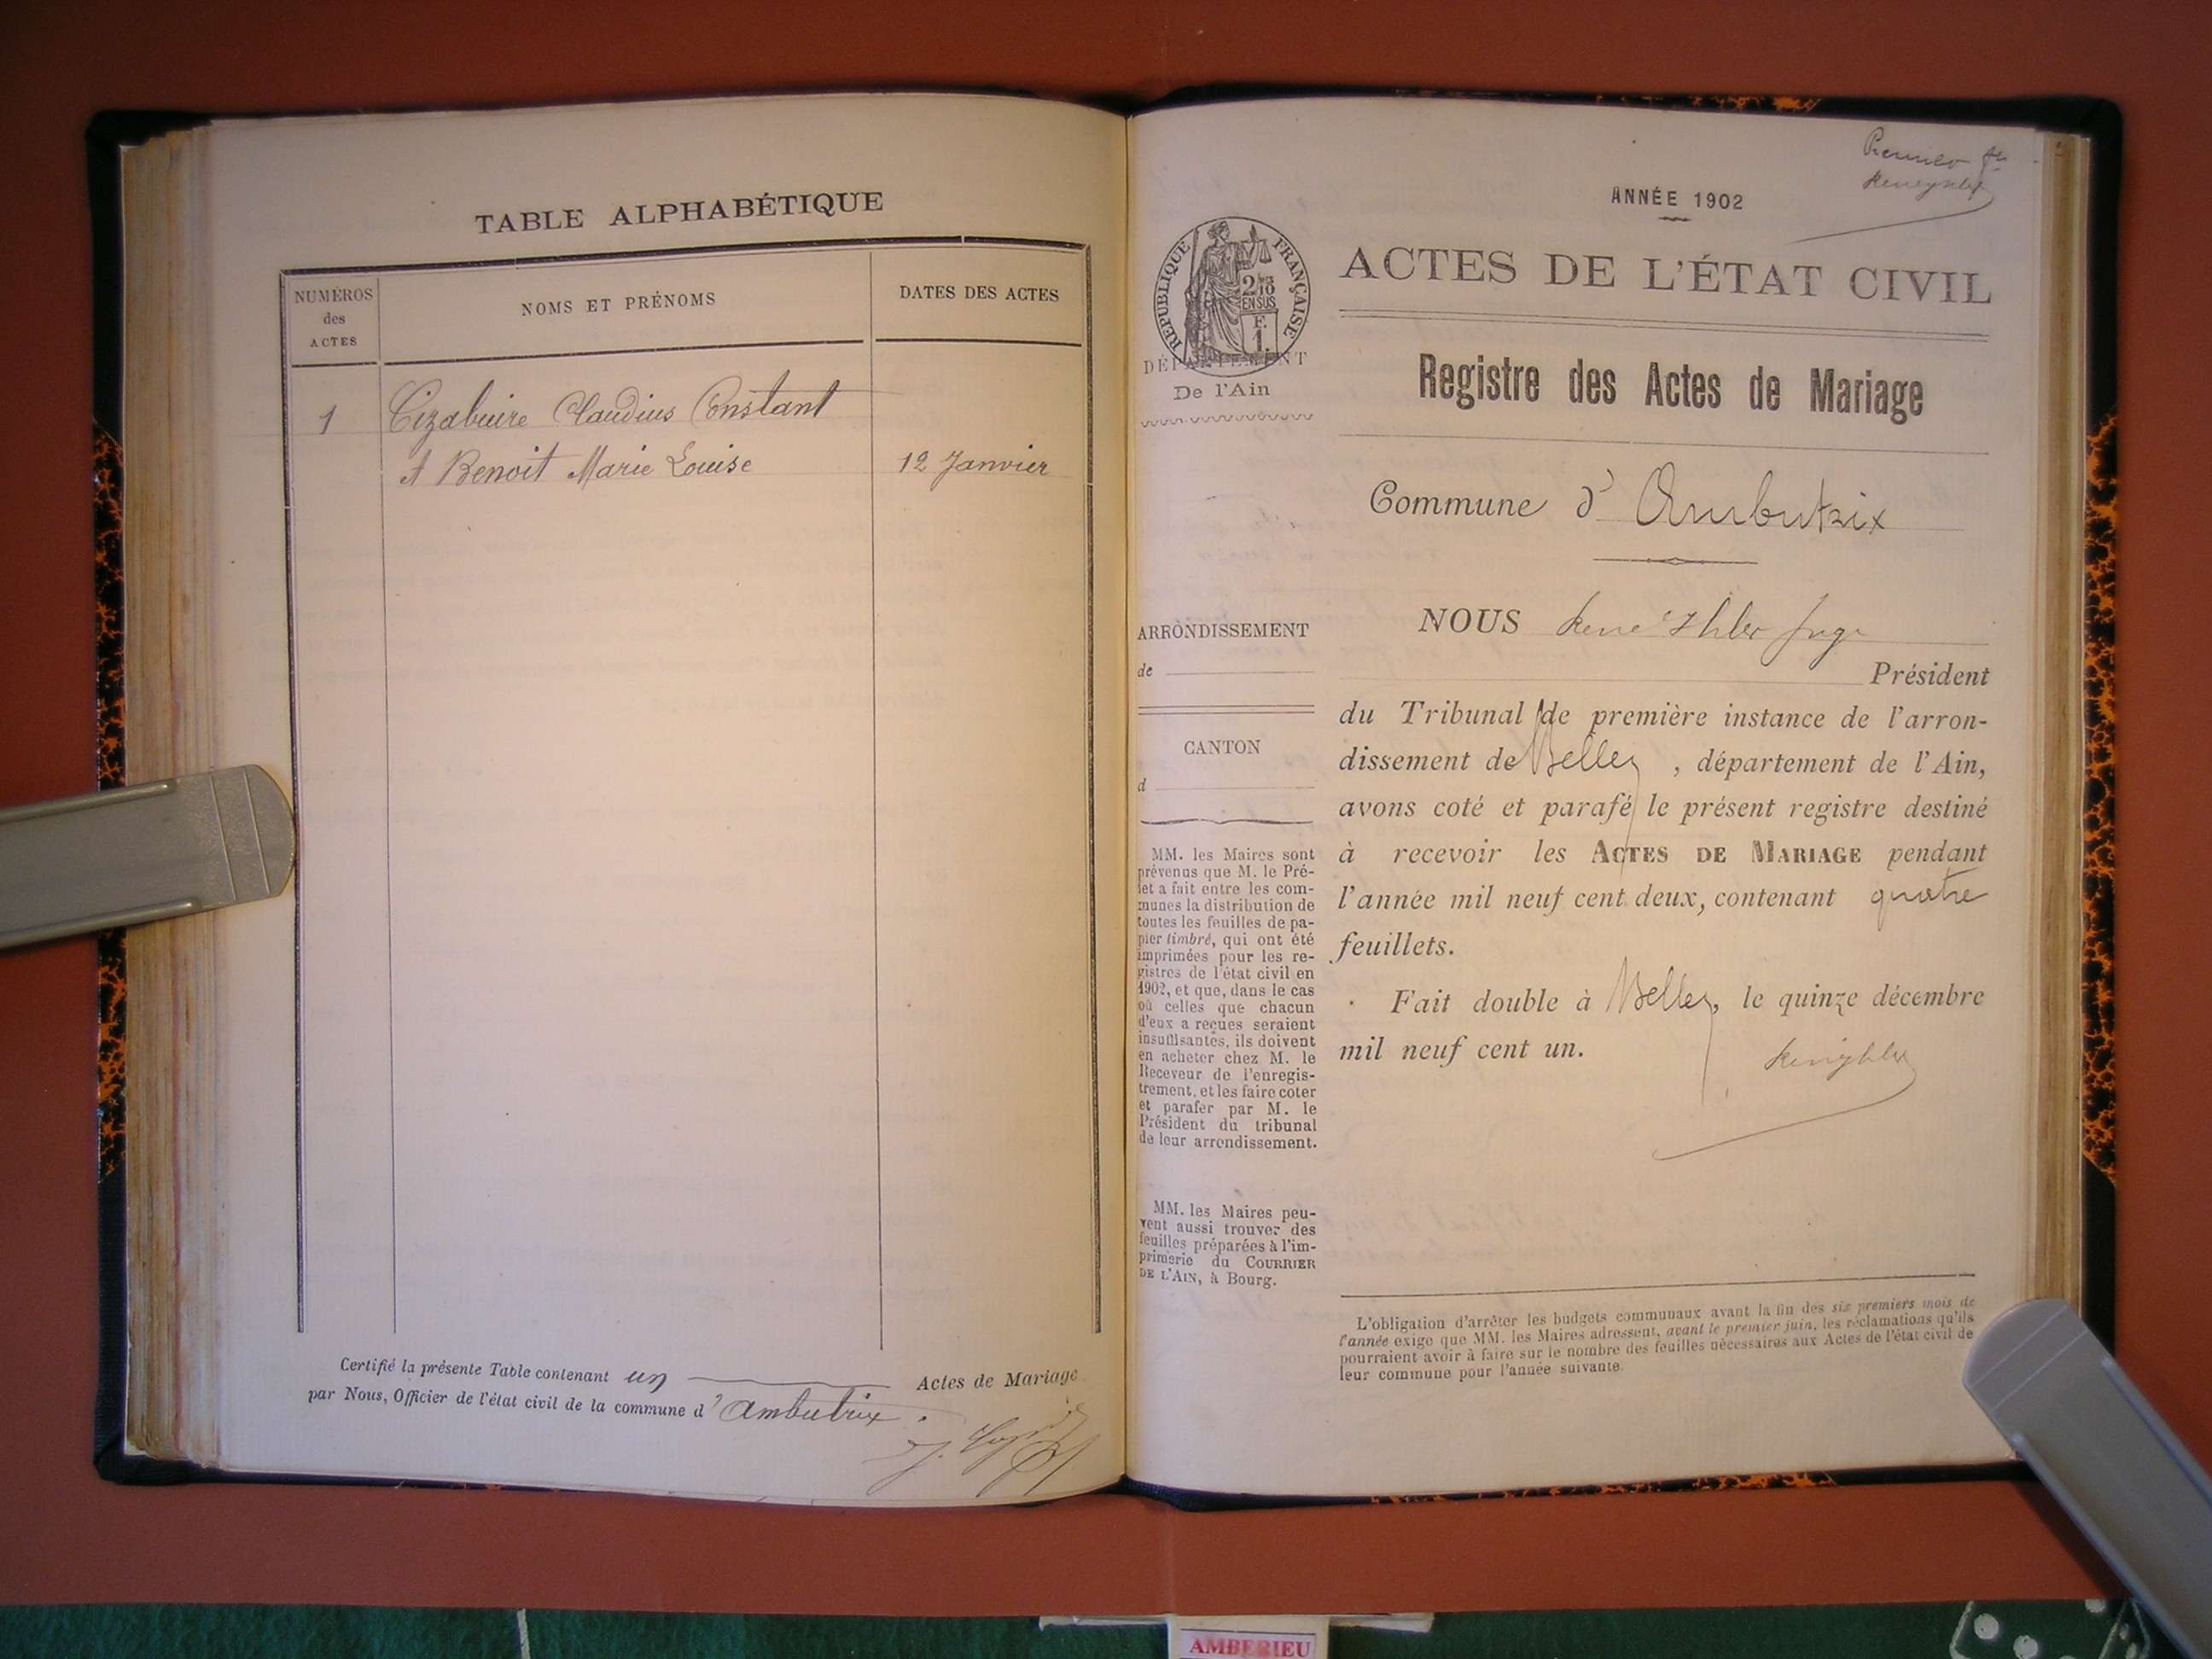 TABLE ALPHABÉTIQUE
NUMÉROS
des
ACTES
NOMS ET PRÉNOMS
DATES DES ACTES
1 Cizabuire Claudius Constant
et Benoit Marie Louise 12 Janvier
Certifié la présente Table contenant un Actes de Mariage
par Nous, Officier de l'état civil de la commune d' Ambutrix.
Premier
ANNÉE 1902
RÉPUBLIQUE FRANÇAISE
2/10
EN SUS
F.
1.
DÉPARTEMENT
De l'Ain
ACTES DE L'ÉTAT CIVIL
Registre des Actes de Mariage
Commune d' Ambutrix
ARRONDISSEMENT
de
CANTON
d
MM. les Maires sont
prévenus que M. le Pré-
fet a fait entre les com-
munes la distribution de
toutes les feuilles de pa-
pier timbré, qui ont été
imprimées pour les re-
gistres de l'état civil en
1902, et que, dans le cas
où celles que chacun
d'eux a reçues seraient
insuffisantes, ils doivent
en acheter chez M. le
Receveur de l'enregis-
trement, et les faire coter
et parafer par M. le
Président du tribunal
de leur arrondissement.
MM. les Maires peu-
vent aussi trouver des
feuilles préparées à l'im-
primerie du COURRIER
DE L'AIN, à Bourg.
NOUS René Ihler Juge
Président
du Tribunal de première instance de l'arron-
dissement de Belley, département de l'Ain,
avons coté et parafé le présent registre destiné
à recevoir les ACTES DE MARIAGE pendant
l'année mil neuf cent deux, contenant quatre
feuillets.
Fait double à Belley, le quinze décembre
mil neuf cent un.
L'obligation d'arrêter les budgets communaux avant la fin des six premiers mois de
l'année exige que MM. les Maires adressent, avant le premier juin, les réclamations qu'ils
pourraient avoir à faire sur le nombre des feuilles nécessaires aux Actes de l'état civil de
leur commune pour l'année suivante.
AMBERIEU